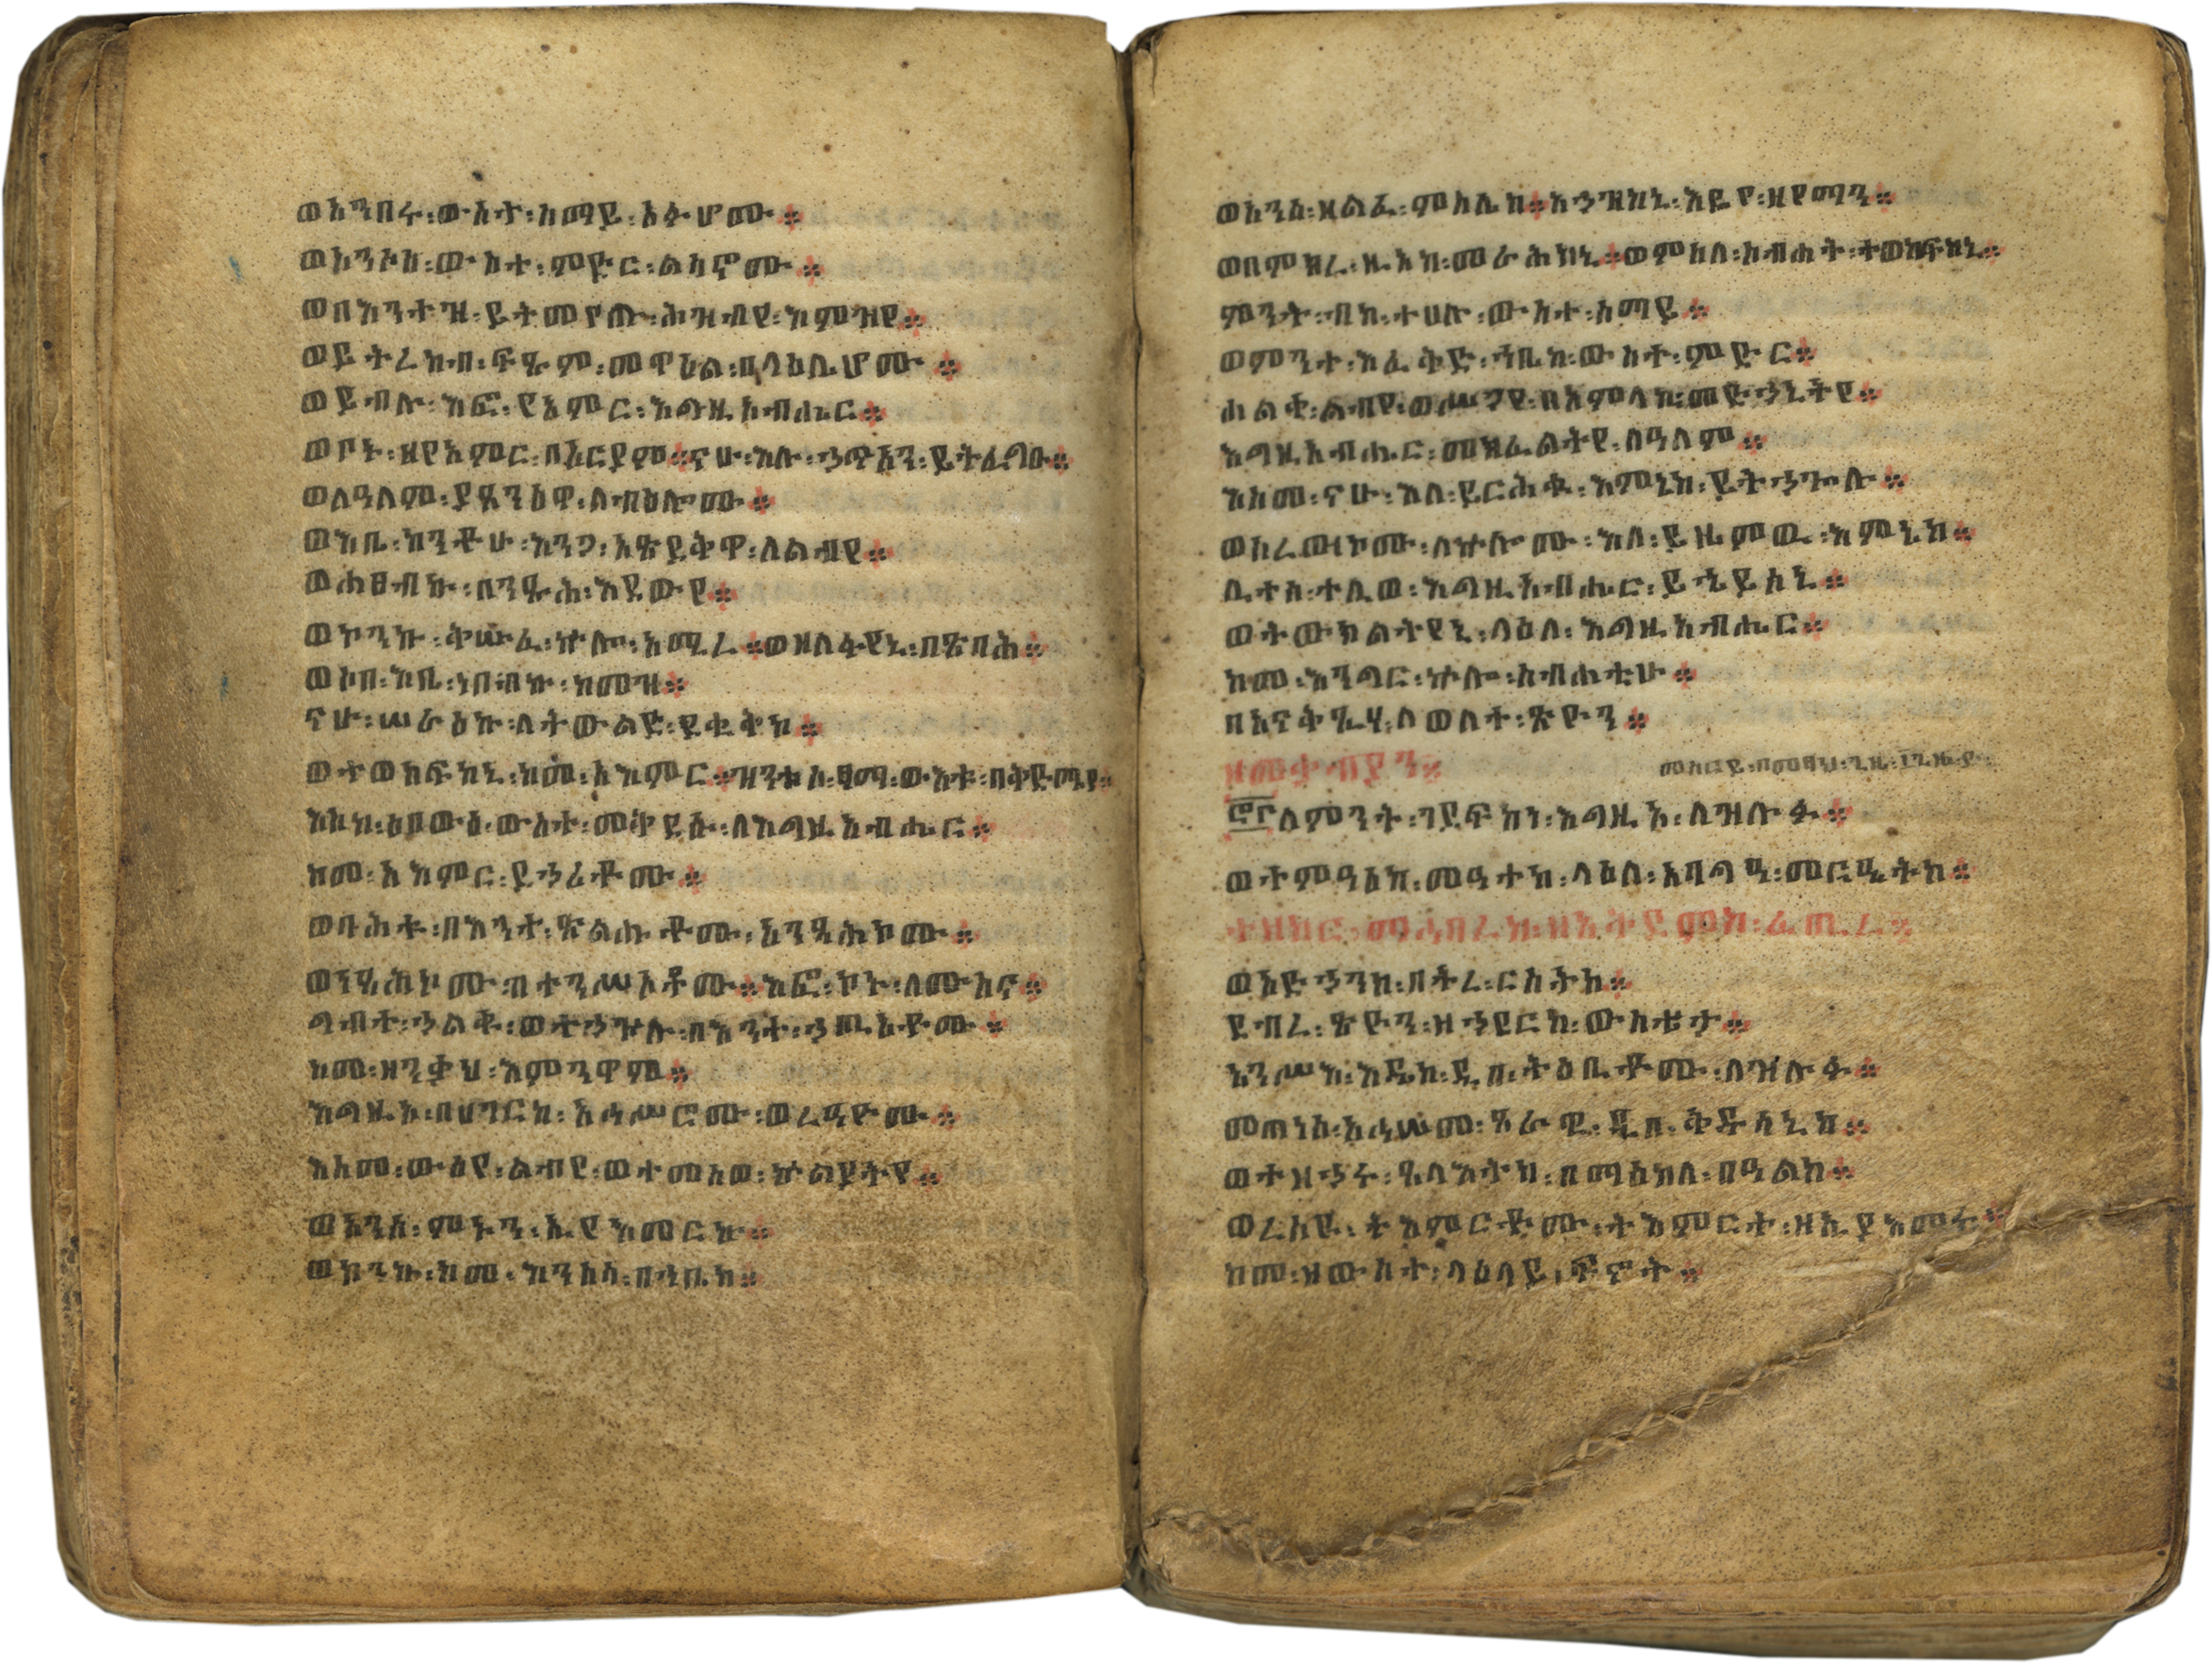 ወአንበሩ፡ውስተ፡ሰማይ፡አፉሆሙ።
ወአንሶሰ፡ውስተ፡ምድር፡ልሳኖሙ።
ወበእንተዝ፡ይትመየጡ፡ሕዝብየ፡እምዝየ።
ወይትረከብ፡ፍጹም፡መዋዕል፡በላዕሌሆሙ።
ወይብሉ፡እፎ፡የአምር፡እግዚአብሔር።
ወቦኑ፡ዘየአምር፡በአርያም።ናሁ፡እሉ፡ኃጥአን፡ይትፌግዑ።
ወለዓለም፡ያጸንዕዋ፡ለብዕሎሙ።
ወእቤ፡ከንቶሁ፡እንጋ፡አጽደቅዋ፡ለልብየ።
ወሐፀብኩ፡በንጹሕ፡እደውየ።
ወኮንኩ፡ቅሡፈ፡ኵሎ፡አሚረ።ወዘለፋየኒ፡በጽባሕ።
ወሶበ፡እቤ፡ነበብኩ፡ከመዝ።
ናሁ፡ሠራዕኩ፡ለትውልድ፡ደቂቅከ።
ወተወከፍከኒ፡ከመ፡አእምር።ዝንቱሰ፡ፃማ፡ውእቱ፡በቅድሜየ።
እስከ፡እበውእ፡ውስተ፡መቅደሱ፡ለእግዚአብሔር።
ከመ፡አእምር፡ደኃሪቶሙ።
ወባሕቱ፡በእንተ፡ጽልሑቶሙ፡
ወነፃሕኮሙ፡በተንሥኦቶሙ።እፎ፡ኮኑ፡ለሙስና።
ግብተ፡ኃልቁ፡ወተኃጕሉ፡በእንተ፡ኃጢአቶሙ።
ከመ፡ዘንቃህ፡እምንዋም።
እግዚኦ፡በሀገርከ፡አኅሥሮሙ፡ወረዓዮሙ።
እስመ፡ውዕየ፡ልብየ፡ወተመሰወ፡ኵልያትየ።
ወአንሰ፡ምኑን፡ኢየአመርኩ።
ወኮንኩ፡ከመ፡እንስሳ፡በኀቤከ።
ወአንሰ፡ዘልፈ፡ምስሌከ።አኃዝከኒ፡እዴየ፡ዘየማን።
ወበምክረ፡ዚአከ፡መራሕከኒ።ወምስለ፡ስብሐት፡ተወከፍከኒ።
ምንት፡ብከ፡ተሀሉ፡ውስተ፡ሰማይ።
ወምንተ፡እፈቅድ፡ኀቤከ፡ውስተ፡ምድር።
ሐልቀ፡ልብየ፡ወሥጋየ፡በአምላከ፡መድኃኒትየ።
እግዚአብሔር፡መክፈልትየ፡ለዓለም።
እስመ፡ናሁ፡እለ፡ይርሕቁ፡እምኔከ፡ይትኃጐሉ።
ወሠረውኮሙ፡ለኵሎሙ፡እለ፡ይዜምዉ፡እምኔከ።
ሊተሰ፡ተሊወ፡እግዚአብሔር፡ይኄይሰኒ።
ወትውክልትየኒ፡ላዕለ፡እግዚአብሔር።
ከመ፡እንግር፡ኵሎ፡ስብሐቲሁ።
በአናቅጺሃ፡ለወለተ፡ጽዮን።
ለምንት፡ገደፍከነ፡እግዚኦ፡ለዝሉፉ።
ወተምዓዕከ፡መዓተከ፡ላዕለ፡አባግዒ፡መርዔትከ።
ተዘከር፡ማኅበረከ፡ዘአቅደምከ፡ፈጢረ።
ወአድኃንከ፡በትረ፡ርስትከ።
ደብረ፡ጽዮን፡ዘኃደርከ፡ውስቴታ።
አንሥእ፡እዴከ፡ዲበ፡ትዕቢቶሙ፡ለዝሉፉ።
መጠነ፡አኅሠመ፡ፀራዊ፡ዲበ፡ቅዱሳኒከ።
ወተዝኅሩ፡ጸላእትከ፡በማእከለ፡በዓልከ።
ወረሰዩ፡ትእምርቶሙ፡ተአምርተ፡ዘኢያእመሩ።
ከመ፡ዝውስተ፡ላዕላይ፡ፍኖት።